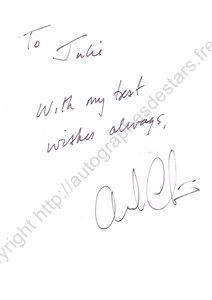 To Julie
With my best
wishes always,
yright http://autographesdestars.fre